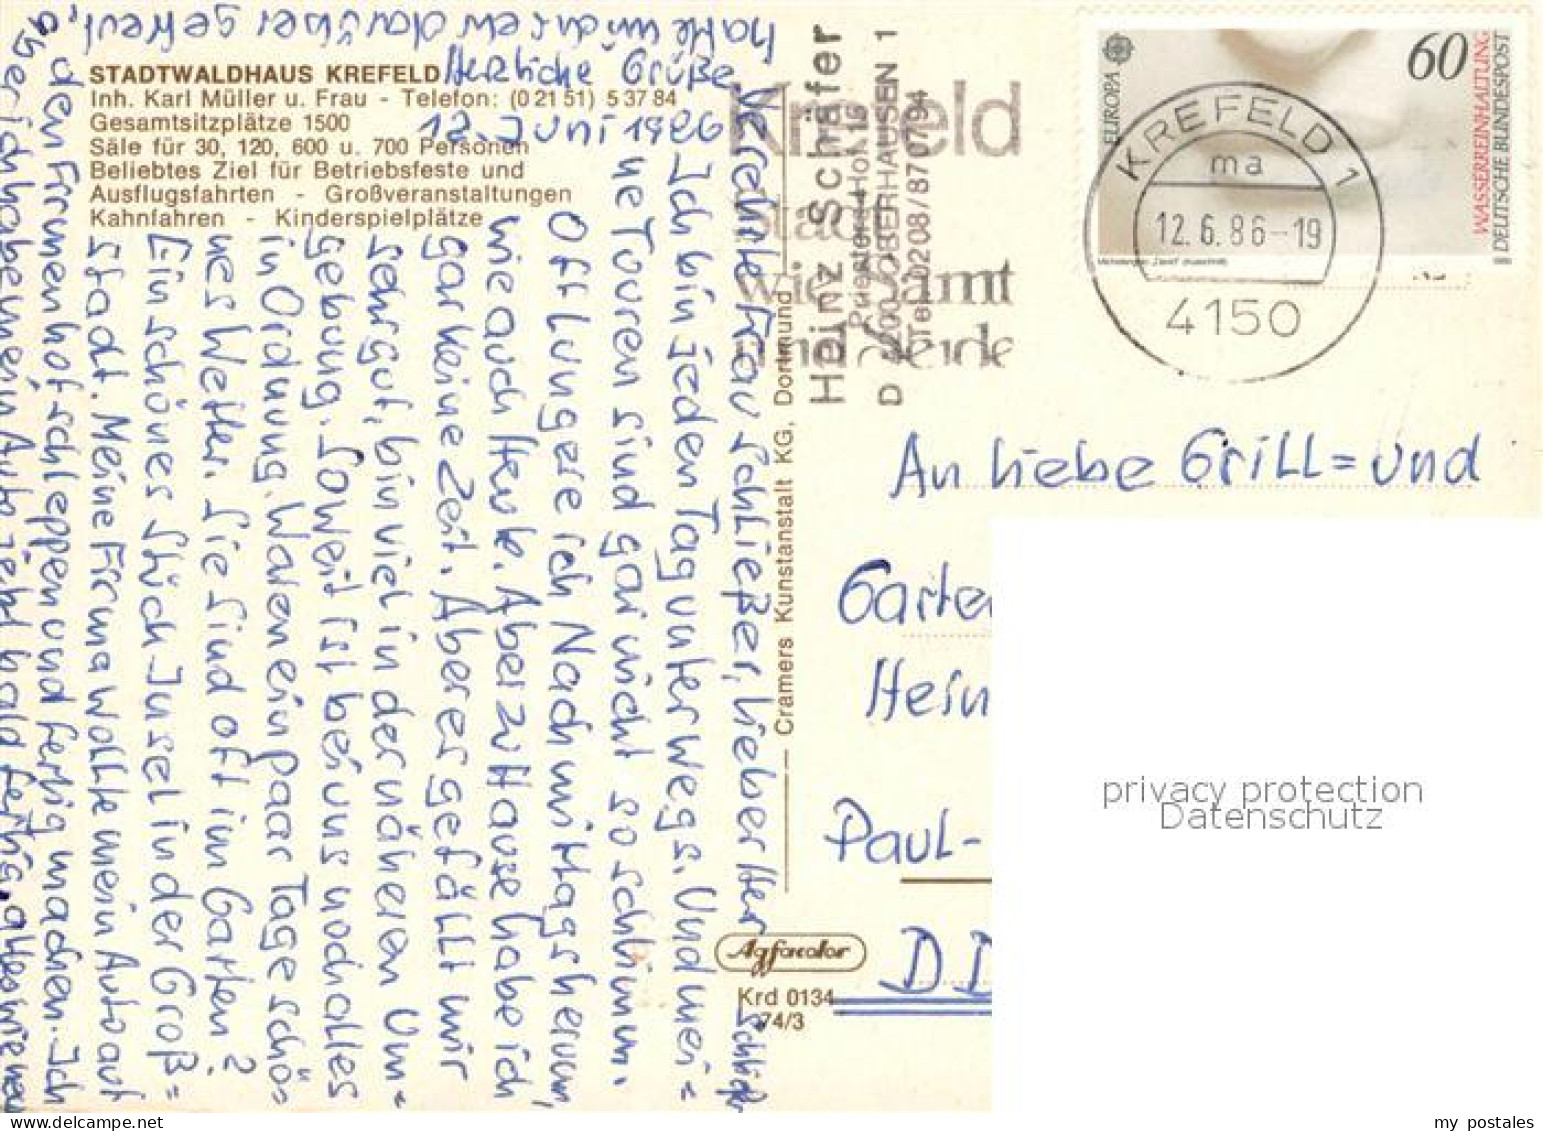 STADTWALDHAUS KREFELD
Inh. Karl Müller u. Frau - Telefon: (0 21 51) 5 37 84
Gesamtsitzplätze 1500
Säle für 30, 120, 600 u. 700 Personen
Beliebtes Ziel für Betriebsfeste und
Ausflugsfahrten - Großveranstaltungen
Kahnfahren - Kinderspielplätze
12. Juni 1986
Verehrte Frau Schließer, lieber Herr Schließer
Ich bin jeden Tag unterwegs. Und mei=
ne Touren sind gar nicht so schlimm.
Oft lungere ich Nachmittags herum,
wie auch Heute. Aber zu Hause habe ich
gar keine Zeit. Aber es gefällt mir
sehr gut, bin viel in der näheren Um=
gebung. Soweit ist bei uns noch alles
in Ordnung. Waren ein paar Tage schö=
nes Wetter. Sie sind oft im Garten?
Ein schönes Stück Insel in der Groß=
stadt. Meine Firma wollte mein Auto auf
den Firmenhof schleppen und fertig machen. Ich
aber ich habe mein Auto jetzt bald fertig,
hatte mich darüber gefreut,
Herzliche Grüße
Cramers Kunstanstalt KG, Dortmund
Agfacolor
Krd 0134
74/3
Krefeld
Stadt
wie Samt
und Seide
Heinz Schäfer
Priesters Hof 16
D 4200 OBERHAUSEN 1
Tel. 0208/870794
EUROPA
60
WASSERREINHALTUNG
DEUTSCHE BUNDESPOST
KREFELD 1
ma
12.6.86-19
4150
An liebe Grill= und
Garte
Hein
Paul-
DD
privacy protection
Datenschutz
my_postales